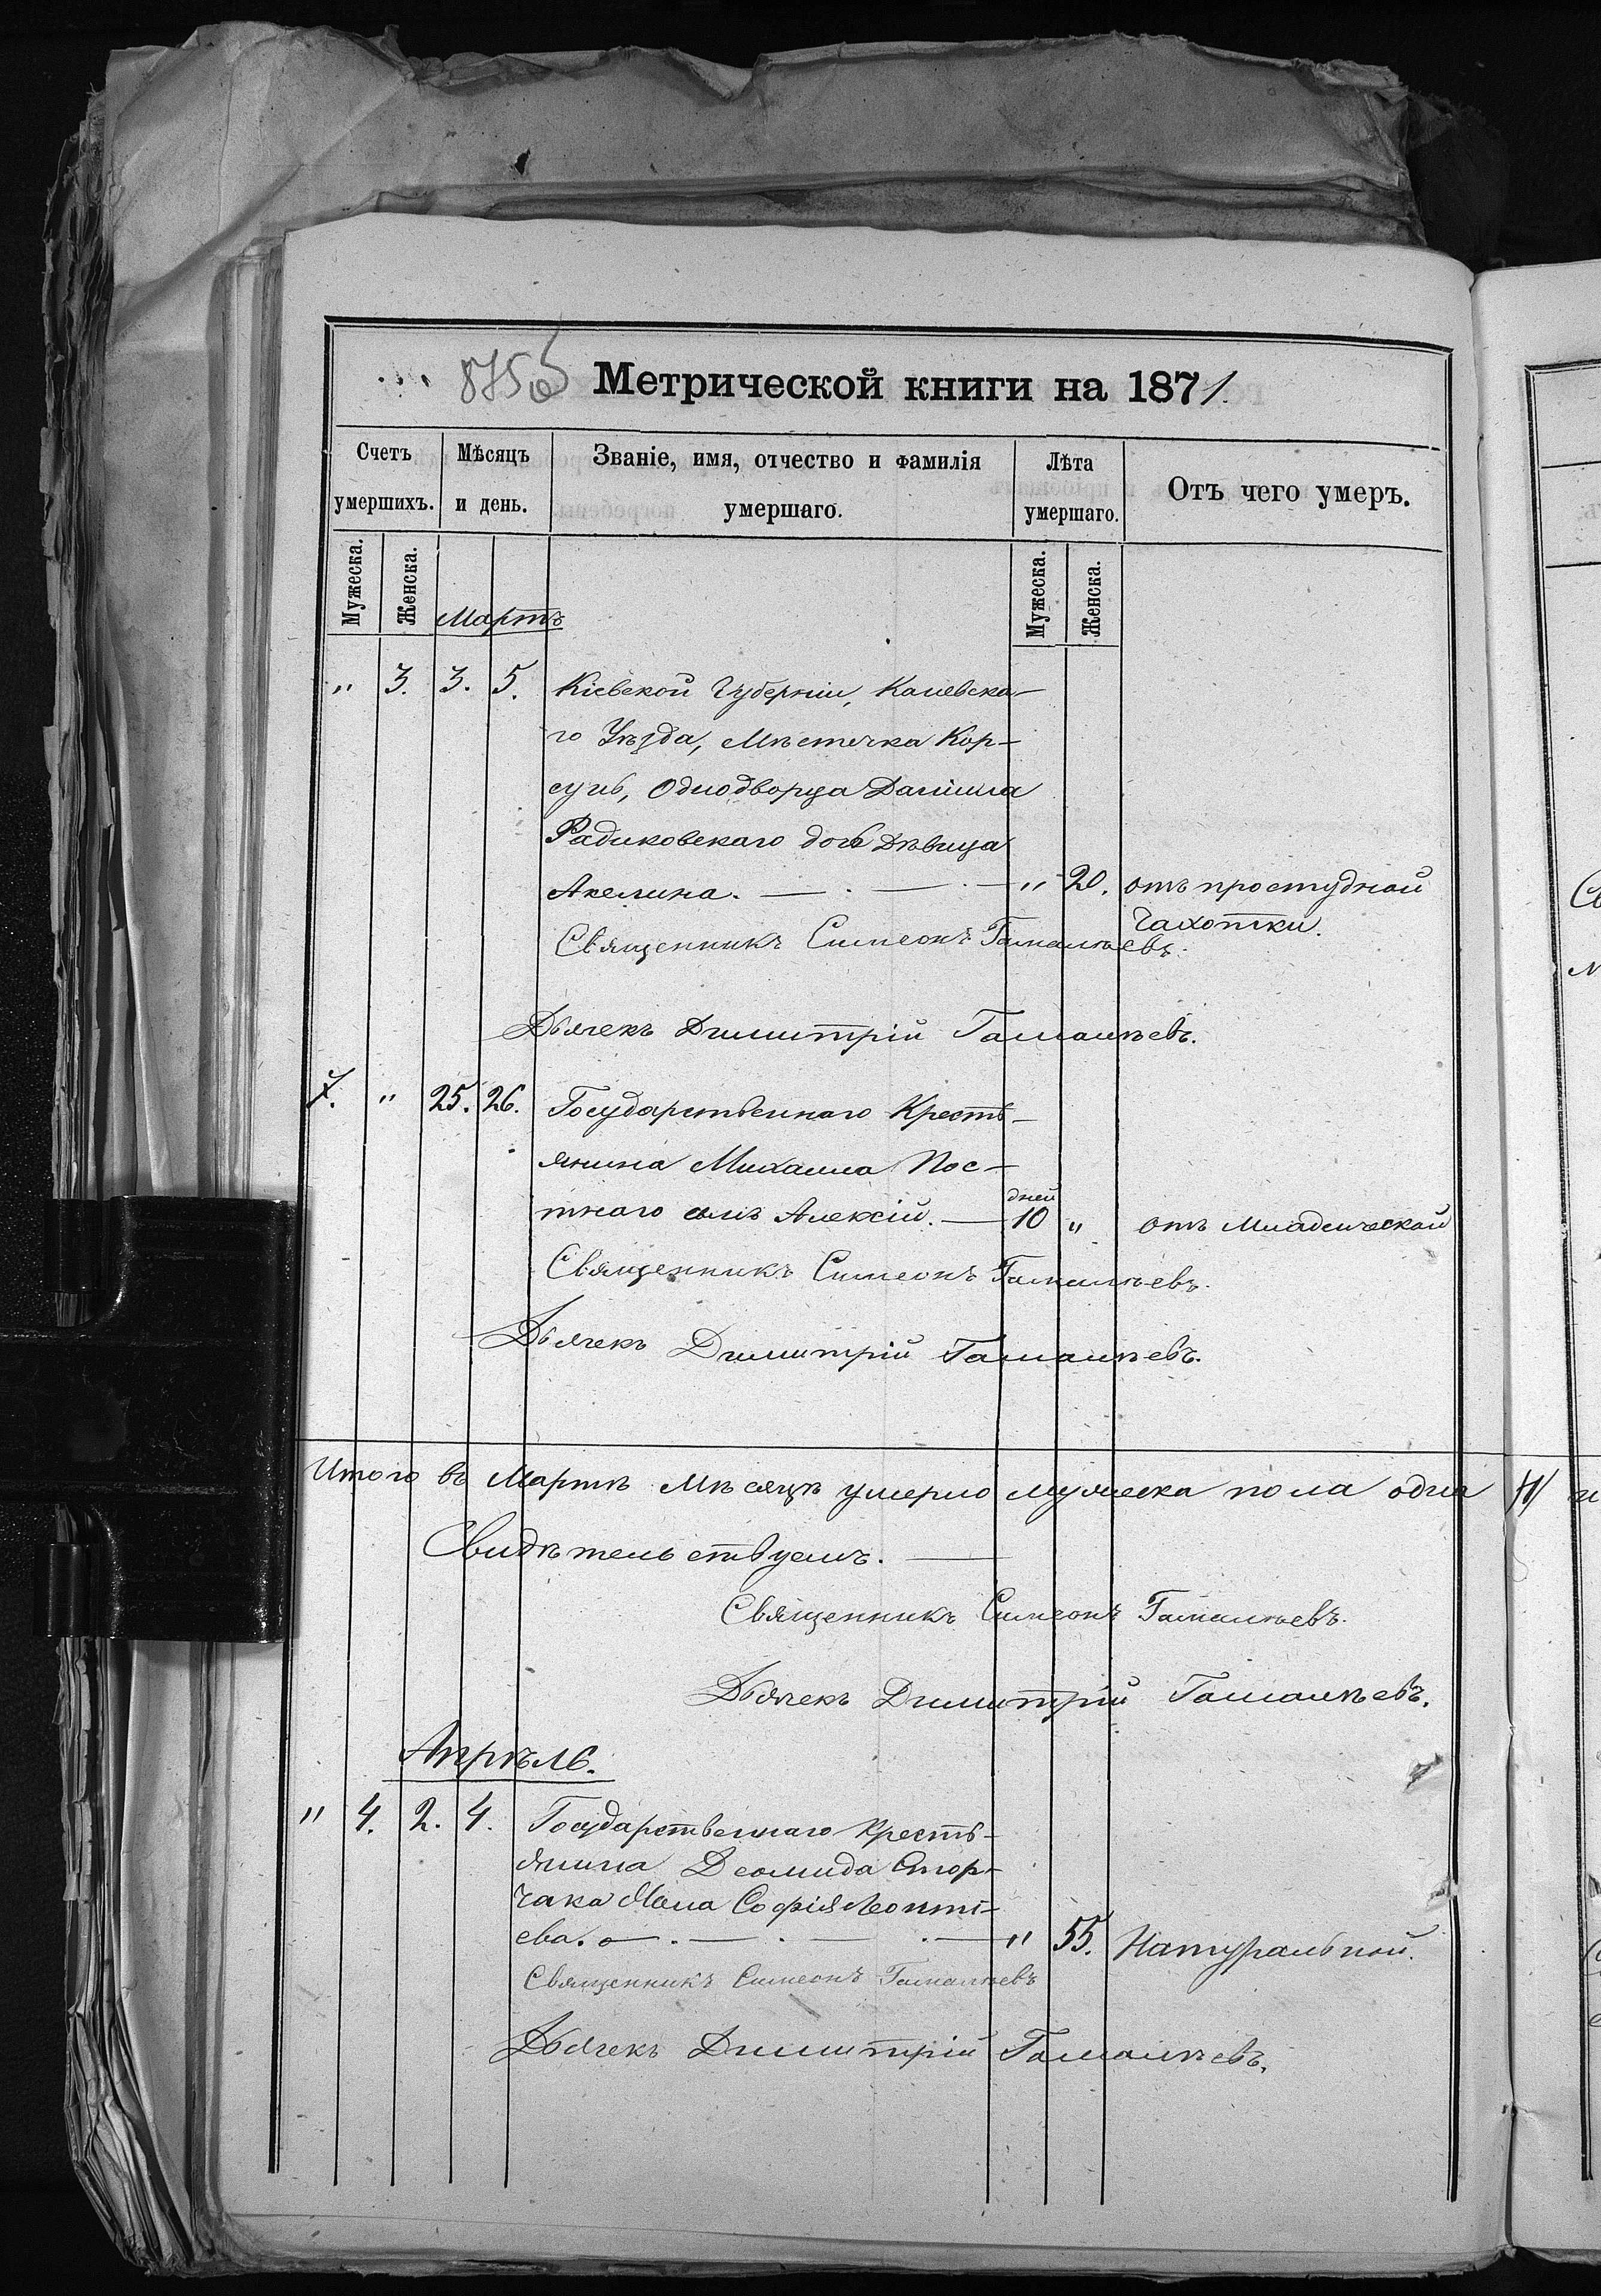 875 об Метрической книги на 1871.
Счетъ умершихъ. Мѣсяцъ и день. Званіе, имя, отчество и фамилія умершаго. Лѣта умершаго. Отъ чего умеръ.
Мужеска. Женска. Мартъ Мужеска. Женска.
" 3. 3. 5. Кіевской Губерніи, Каневска-
го Уѣзда, Мѣстечка Кор-
сунь, Однодворца Даніила
Радиковскаго дочь Дѣвица
Акелина. — " 20. отъ простудной
чахотки.
Священникъ Симеонъ Гамалѣевъ.
Дьячекъ Димитрій Гамалѣевъ.
7. " 25. 26. Государственнаго Кресть-
янина Михаила Пос-
тнаго сынъ Алексій. — дней 10 " отъ младенческой
Священникъ Симеонъ Гамалѣевъ.
Дьячекъ Димитрій Гамалѣевъ.
Итого въ Мартѣ Мѣсяцѣ умерло мужеска пола одна
Свидѣтельствуемъ. —
Священникъ Симеонъ Гамалѣевъ.
Дьячекъ Димитрій Гамалѣевъ.
Апрѣль.
" 4. 2. 4. Государственнаго Кресть-
янина Деомида Стор-
чака Жена Софія Леонті-
ева. — " 55. Натуральной.
Священникъ Симеонъ Гамалѣевъ
Дьячекъ Димитрій Гамалѣевъ.